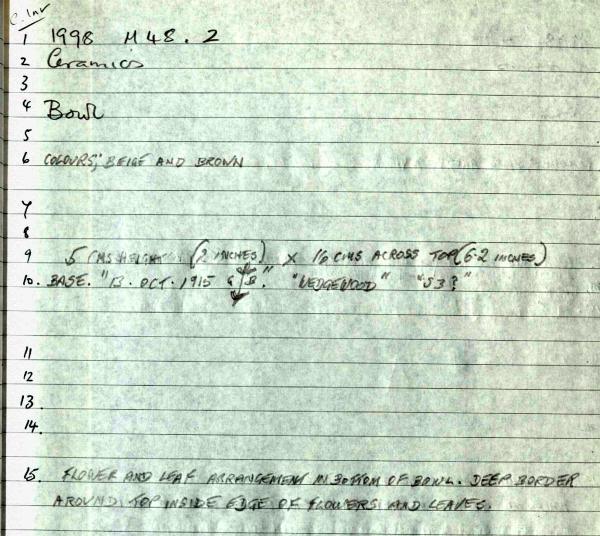 C. Inv
1 1998 M48.2
2 Ceramics
3
4 Bowl
5
6 COLOURS; BEIGE AND BROWN
7
8
9 5 CMS HEIGHT (2 INCHES) X 16 CMS ACROSS TOP (6.2 INCHES)
10. BASE. "13. OCT. 1915 G B." "WEDGEWOOD" "53?"
11
12
13.
14.
15. FLOWER AND LEAF ARRANGEMENT IN BOTTOM OF BOWL. DEEP BORDER
AROUND TOP INSIDE EDGE OF FLOWERS AND LEAVES.